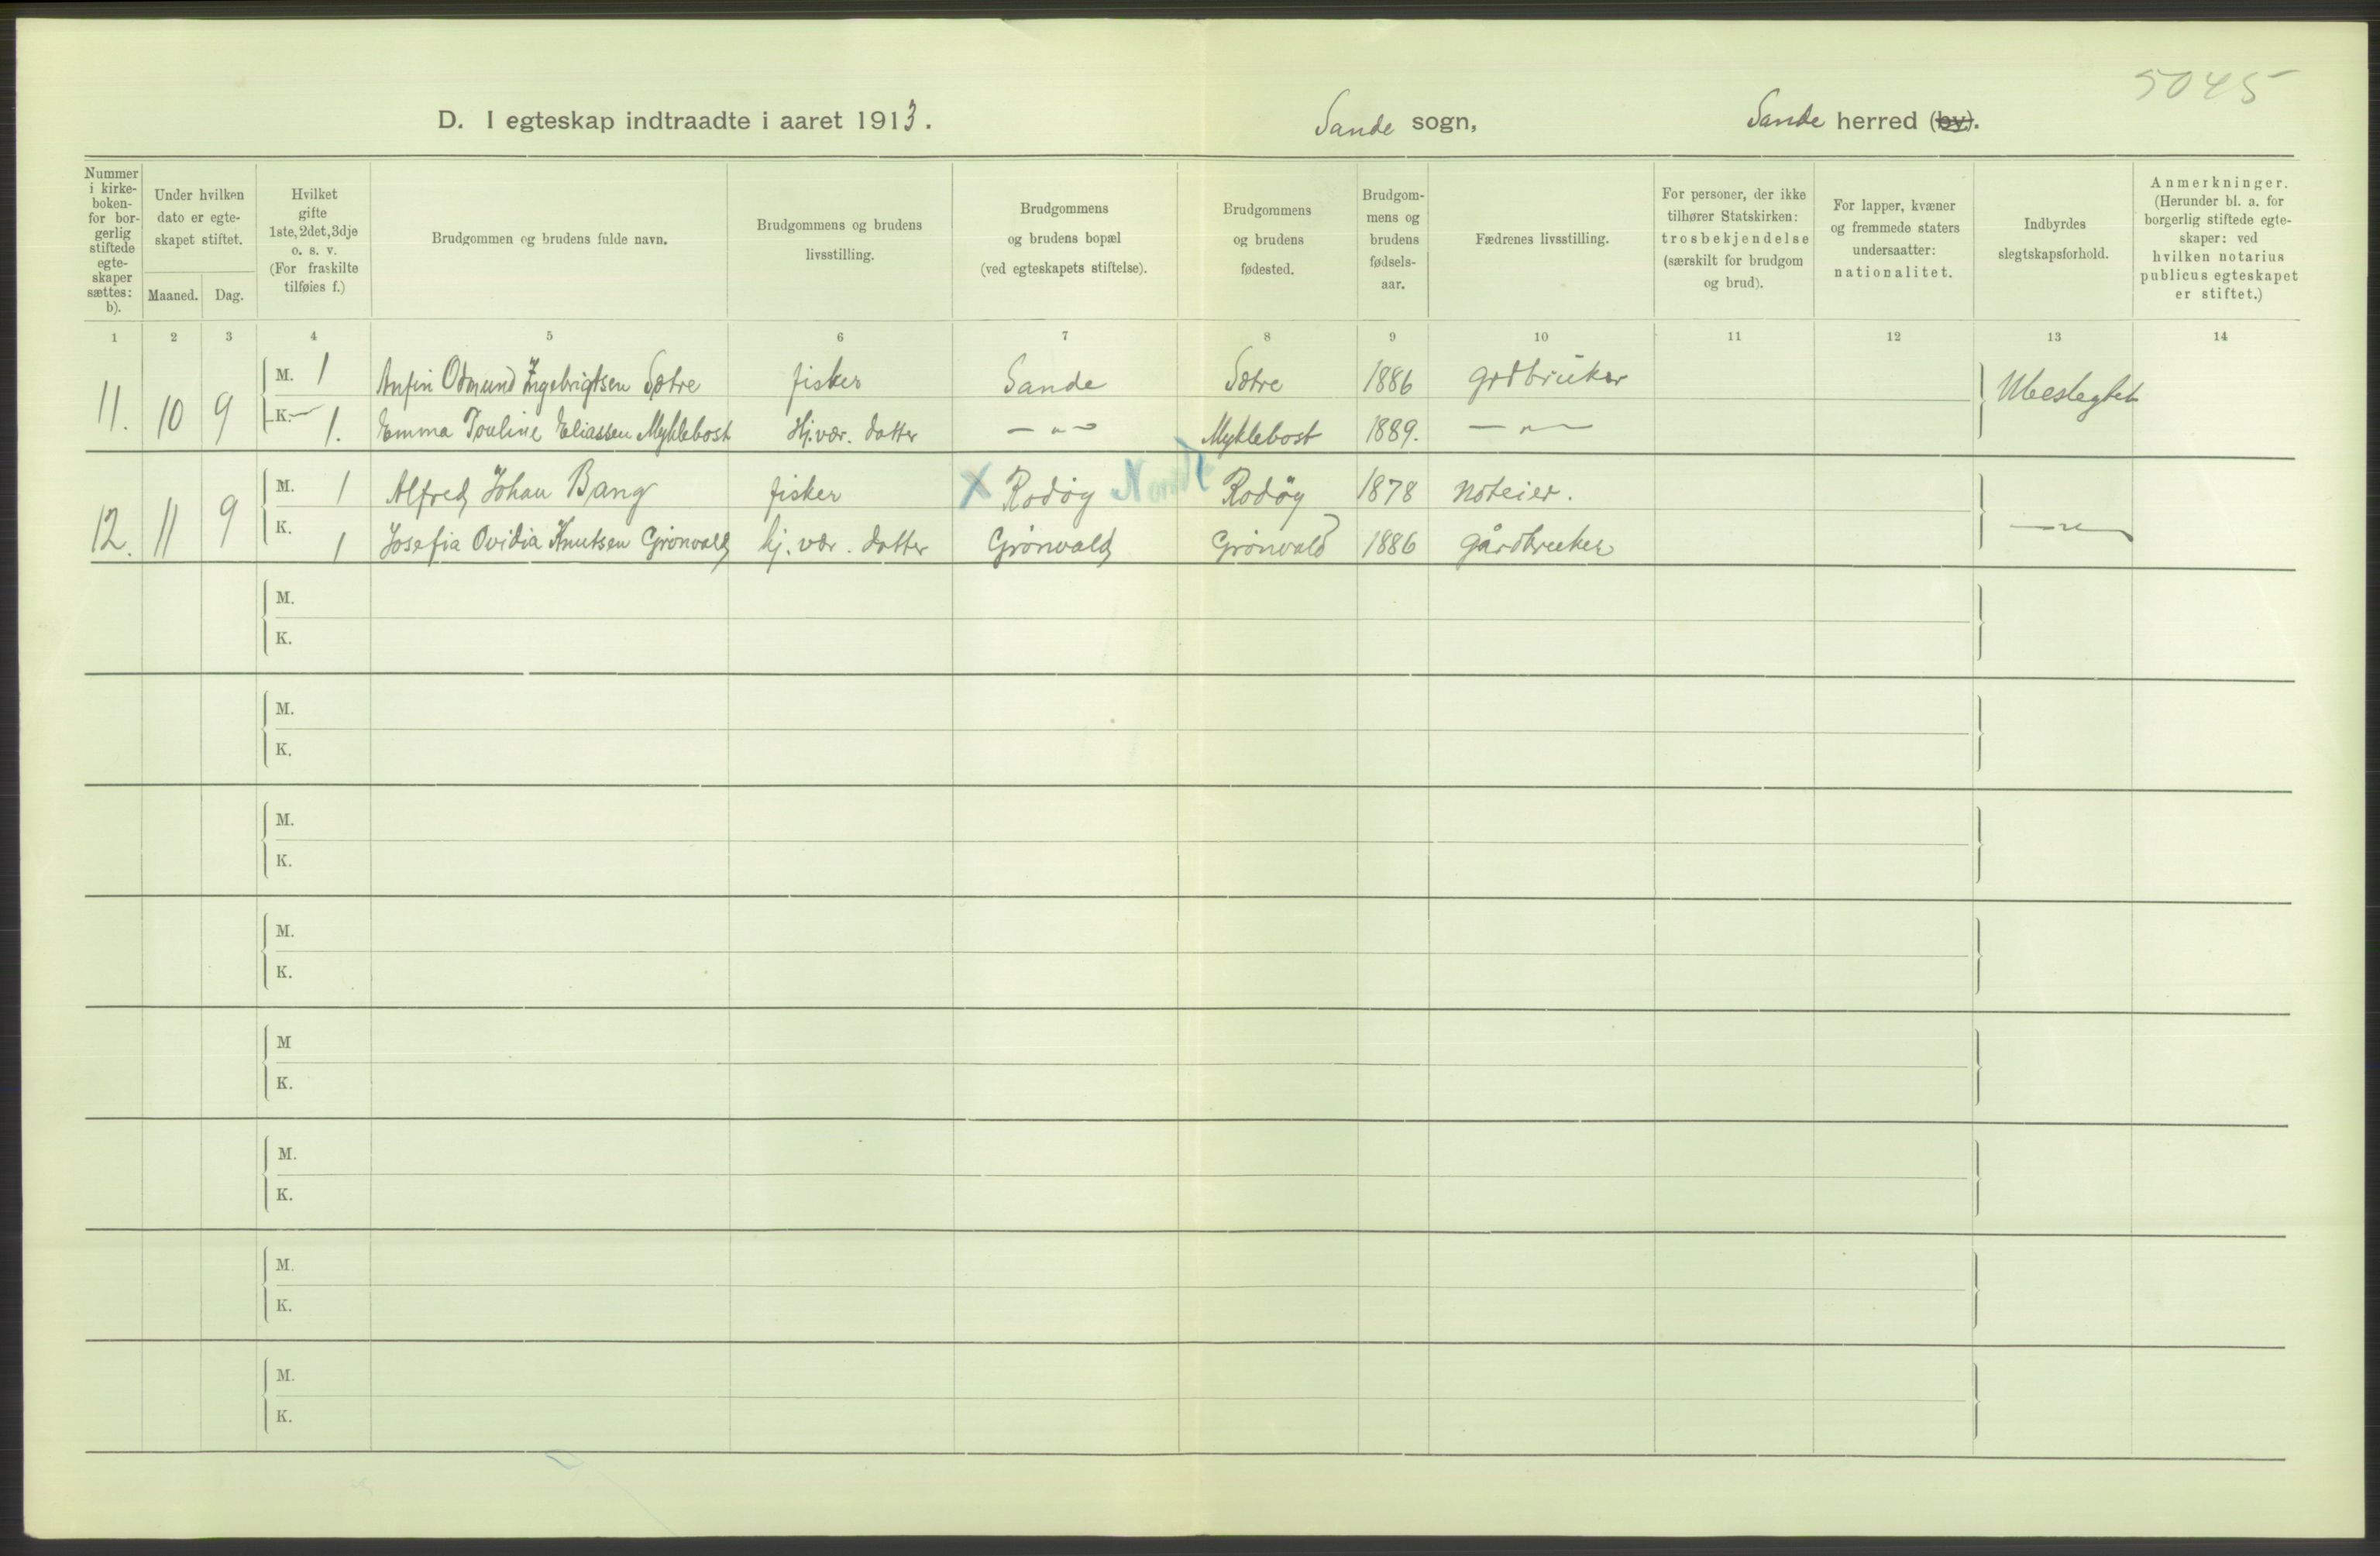 5045
D. I egteskap indtraadte i aaret 1913. Sande sogn, Sande herred (by).
Nummer i kirke-boken- for bor-gerlig stiftede egte-skaper sættes: b).
Under hvilken dato er egte-skapet stiftet.
Maaned. Dag.
Hvilket gifte 1ste, 2det, 3dje o. s. v. (For fraskilte tilføies f.)
Brudgommen og brudens fulde navn.
Brudgommens og brudens livsstilling.
Brudgommens og brudens bopæl (ved egteskapets stiftelse).
Brudgommens og brudens fødested.
Brudgom-mens og brudens fødsels-aar.
Fædrenes livsstilling.
For personer, der ikke tilhører Statskirken: trosbekjendelse (særskilt for brudgom og brud).
For lapper, kvæner og fremmede staters undersaatter: nationalitet.
Indbyrdes slegtskapsforhold.
Anmerkninger. (Herunder bl. a. for borgerlig stiftede egte-skaper: ved hvilken notarius publicus egteskapet er stiftet.)
1 2 3 4 5 6 7 8 9 10 11 12 13 14
11. 10 9 M. 1 Anfin Odmund Ingebrigtsen Sætre fisker Sande Sætre 1886 grdbruker Ubeslegtet
K. 1. Emma Pouline Eliassen Myklebost Hj.vær. datter — " — Myklebost 1889. — " —
12. 11 9 M. 1 Alfred Johan Bang fisker X Rodøy Nordl Rodøy 1878 noteier. — " —
K. 1 Josefia Ovidia Knutsen Grønvald hj. vær. datter Grønvald Grønvald 1886 gårdbruker
M.
K.
M.
K.
M.
K.
M.
K.
M
K.
M.
K.
M.
K.
M.
K.